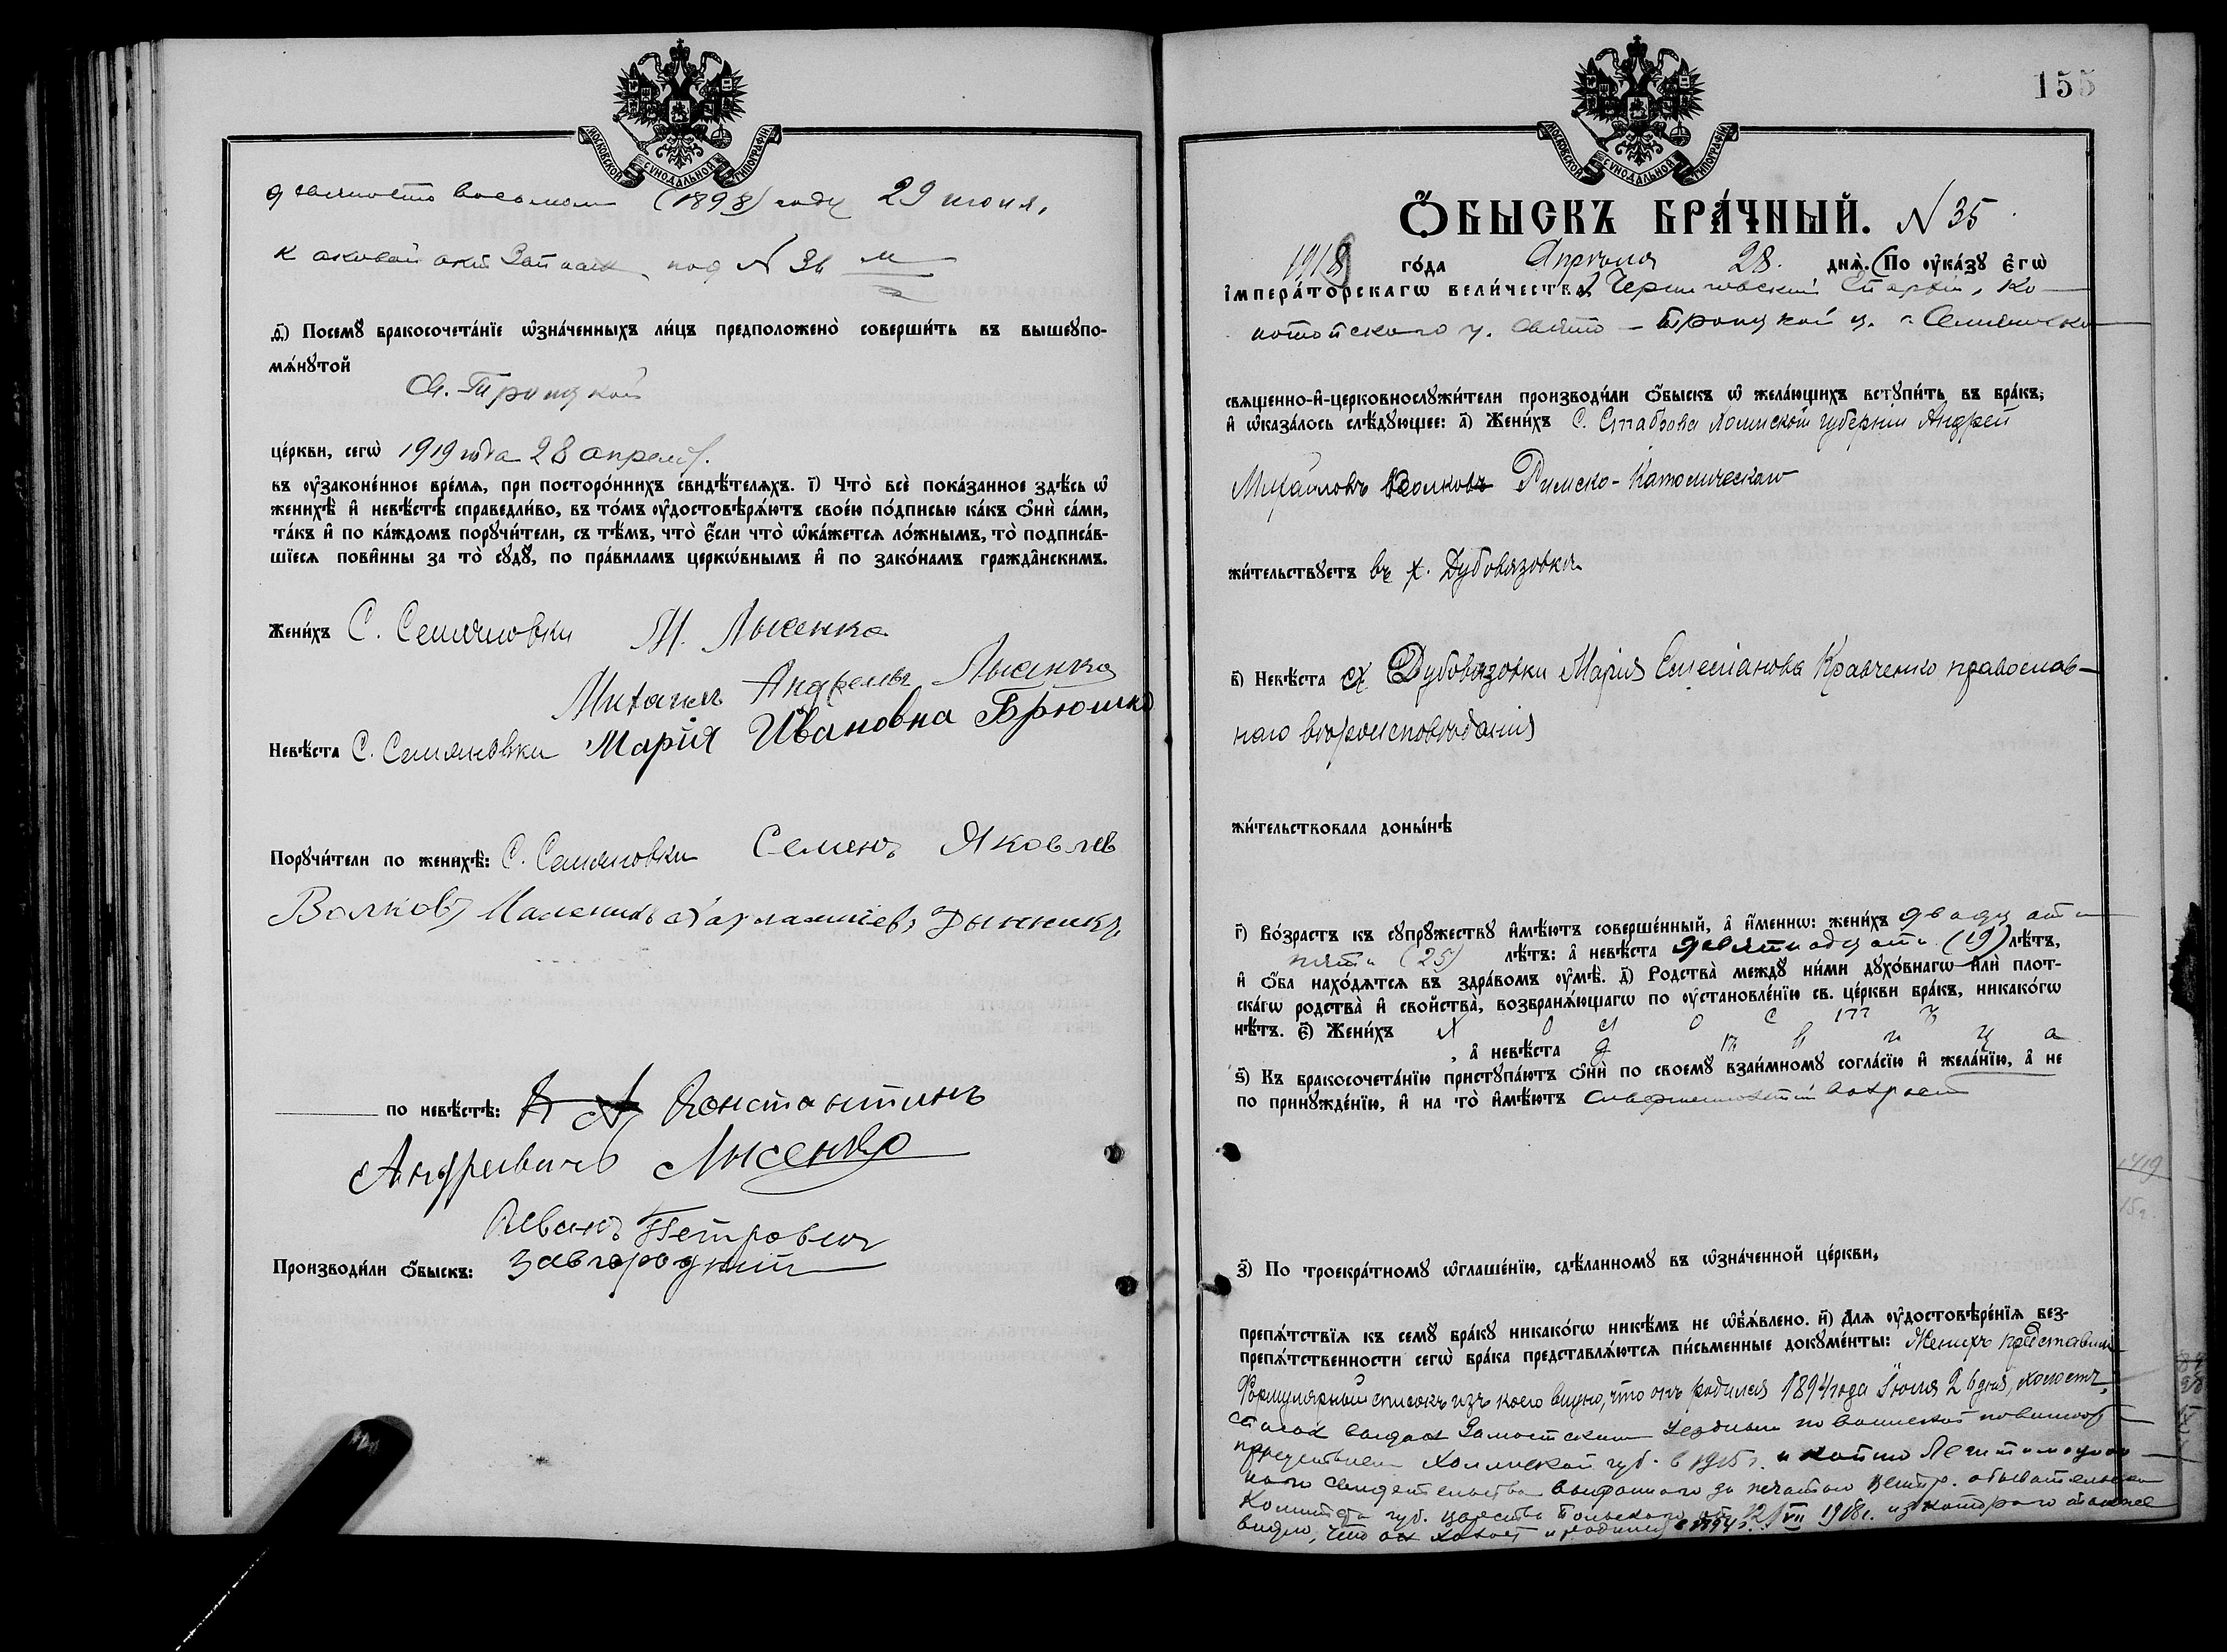 МОСКОВСКОЙ СѴНОДАЛЬНОЙ ТИПОГРАФІИ
девяносто восьмом (1898) году 29 июня,
каковой акт записан под № 36 м
ѳ҃) Посемꙋ бракосочета́нїе ѡ҆зна́ченныхъ ли́цъ предположено̀ соверши́ть въ вышеꙋпо-
мѧ́нꙋтой
Св. Троицкой
це́ркви, сегѡ̀ 1919 года 28 апреля.
въ ᲂу҆зако́ненное вре́мѧ, при посторо́ннихъ свидѣ́телѧхъ. і҃) Что̀ всѐ пока́занное здѣ́сь ѡ҆
женихѣ̀ и҆ невѣ́стѣ справедли́во, въ то́мъ ᲂу҆достовѣрѧ́ютъ свое́ю по́дписью ка́къ ѻ҆нѝ са́ми,
та́къ и҆ по ка́ждомъ порꙋчи́тели, съ тѣ́мъ, что̀ є҆́сли что̀ ѡ҆ка́жетсѧ ло́жнымъ, то̀ подписа́в-
шїесѧ пови́нны за то̀ сꙋдꙋ̀, по пра́виламъ церко́внымъ и҆ по зако́намъ гражда́нскимъ.
Жени́хъ С. Семяновки М. Лысенко
Михаилъ Андреевъ Лысенко
Невѣ́ста С. Семяновки Марія Ивановна Брюшко
Порꙋчи́тели по женихѣ̀: С. Семяновки Семенъ Яковлев
Волковъ Харлампіевъ Дынникъ
по невѣ́стѣ: Константинъ
Андреевичъ Лысенко
Иванъ Петрович
Производи́ли ѻ҆́быскъ: Завгородній
155
МОСКОВСКОЙ СѴНОДАЛЬНОЙ ТИПОГРАФІИ
Ѻ҆́БЫСКЪ БРА́ЧНЫЙ. № 35
1918 го́да Апрѣля 28. днѧ̀. (По ᲂу҆ка́зꙋ є҆гѡ̀
і҆мпера́торскагѡ вели́чества) Черниговской Епархіи, Ко-
нотопского у. Свято-Троицкой ц. с. Семяновки
свѧще́нно-и҆-церковнослꙋжи́тели производи́ли ѻ҆́быскъ ѡ҆ жела́ющихъ встꙋпи́ть въ бра́къ,
и҆ ѡ҆каза́лось слѣ́дꙋющее: а҃) Жени́хъ С. Стаброва Холмской губерніи Андрей
Михайловъ Волковъ Римско-Католическаго
жи́тельствꙋетъ въ х. Дубовязовка
в҃) Невѣ́ста х. Дубовязовки Марія Емеліанова Кравченко православ-
наго вѣроисповѣданія
жи́тельствовала доны́нѣ
г҃) Во́зрастъ къ сꙋпрꙋ́жествꙋ и҆мѣ́ютъ соверше́нный, а҆ и҆́меннѡ: жени́хъ двадцати
пяти (25) лѣ́тъ: а҆ невѣ́ста девятнадцати (19) лѣ́тъ,
и҆ ѻ҆́ба нахо́дѧтсѧ въ здра́вомъ ᲂу҆мѣ̀. д҃) Родства̀ междꙋ̀ ни́ми дꙋхо́внагѡ и҆лѝ плот-
ска́гѡ родства̀ и҆ свойства̀, возбранѧ́ющагѡ по ᲂу҆становле́нїю св. це́ркви бра́къ, никако́гѡ
нѣ́тъ. є҃) Жени́хъ х о л о с т ъ
, а҆ невѣ́ста д ѣ в и ц а
ѕ҃) Къ бракосочета́нїю пристꙋпа́ютъ ѻ҆нѝ по своемꙋ̀ взаи́мномꙋ согла́сїю и҆ жела́нїю, а҆ не
по принꙋжде́нїю, и҆ на то̀ и҆мѣ́ютъ совершеннолетній возраст
з҃) По троекра́тномꙋ ѡ҆глаше́нїю, сдѣ́ланномꙋ въ ѡ҆зна́ченной це́ркви,
препѧ́тствїѧ къ семꙋ̀ бра́кꙋ никако́гѡ никѣ́мъ не ѡ҆б̾ѧ́влено. и҃) Длѧ ᲂу҆достовѣре́нїѧ без-
препѧ́тственности сегѡ̀ бра́ка представлѧ́ютсѧ пи́сьменные докꙋме́нты: Женихъ представилъ
Формулярный списокъ изъ коего видно, что онъ родился 1894 года Іюля 26 дня, холостъ,
выдан Замостским Уездным по воинской повинност
присутствием Холмской губ. в 1915 г. и копию Легитимацион-
ного свидетельства выданного за печатью Центр. обывательск
Комитета губ. царства Польского от 12/VII 1918 г. из которого также
видно, что он холост и родился в 1894 г.